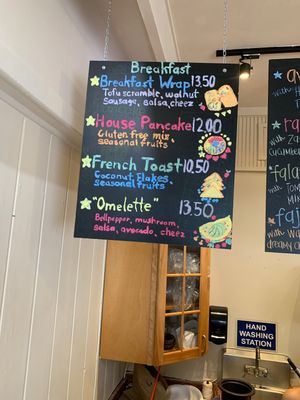 Breakfast
Breakfast Wrap 13.50
Tofu scramble, walnut
Sausage, salsa, cheez
House Pancake 12.00
Gluten free mix,
seasonal fruits
French Toast 10.50
Coconut Flakes,
seasonal fruits
"Omelette" 13.50
Bellpepper, mushroom,
salsa, avocado, cheez
HAND
WASHING
STATION